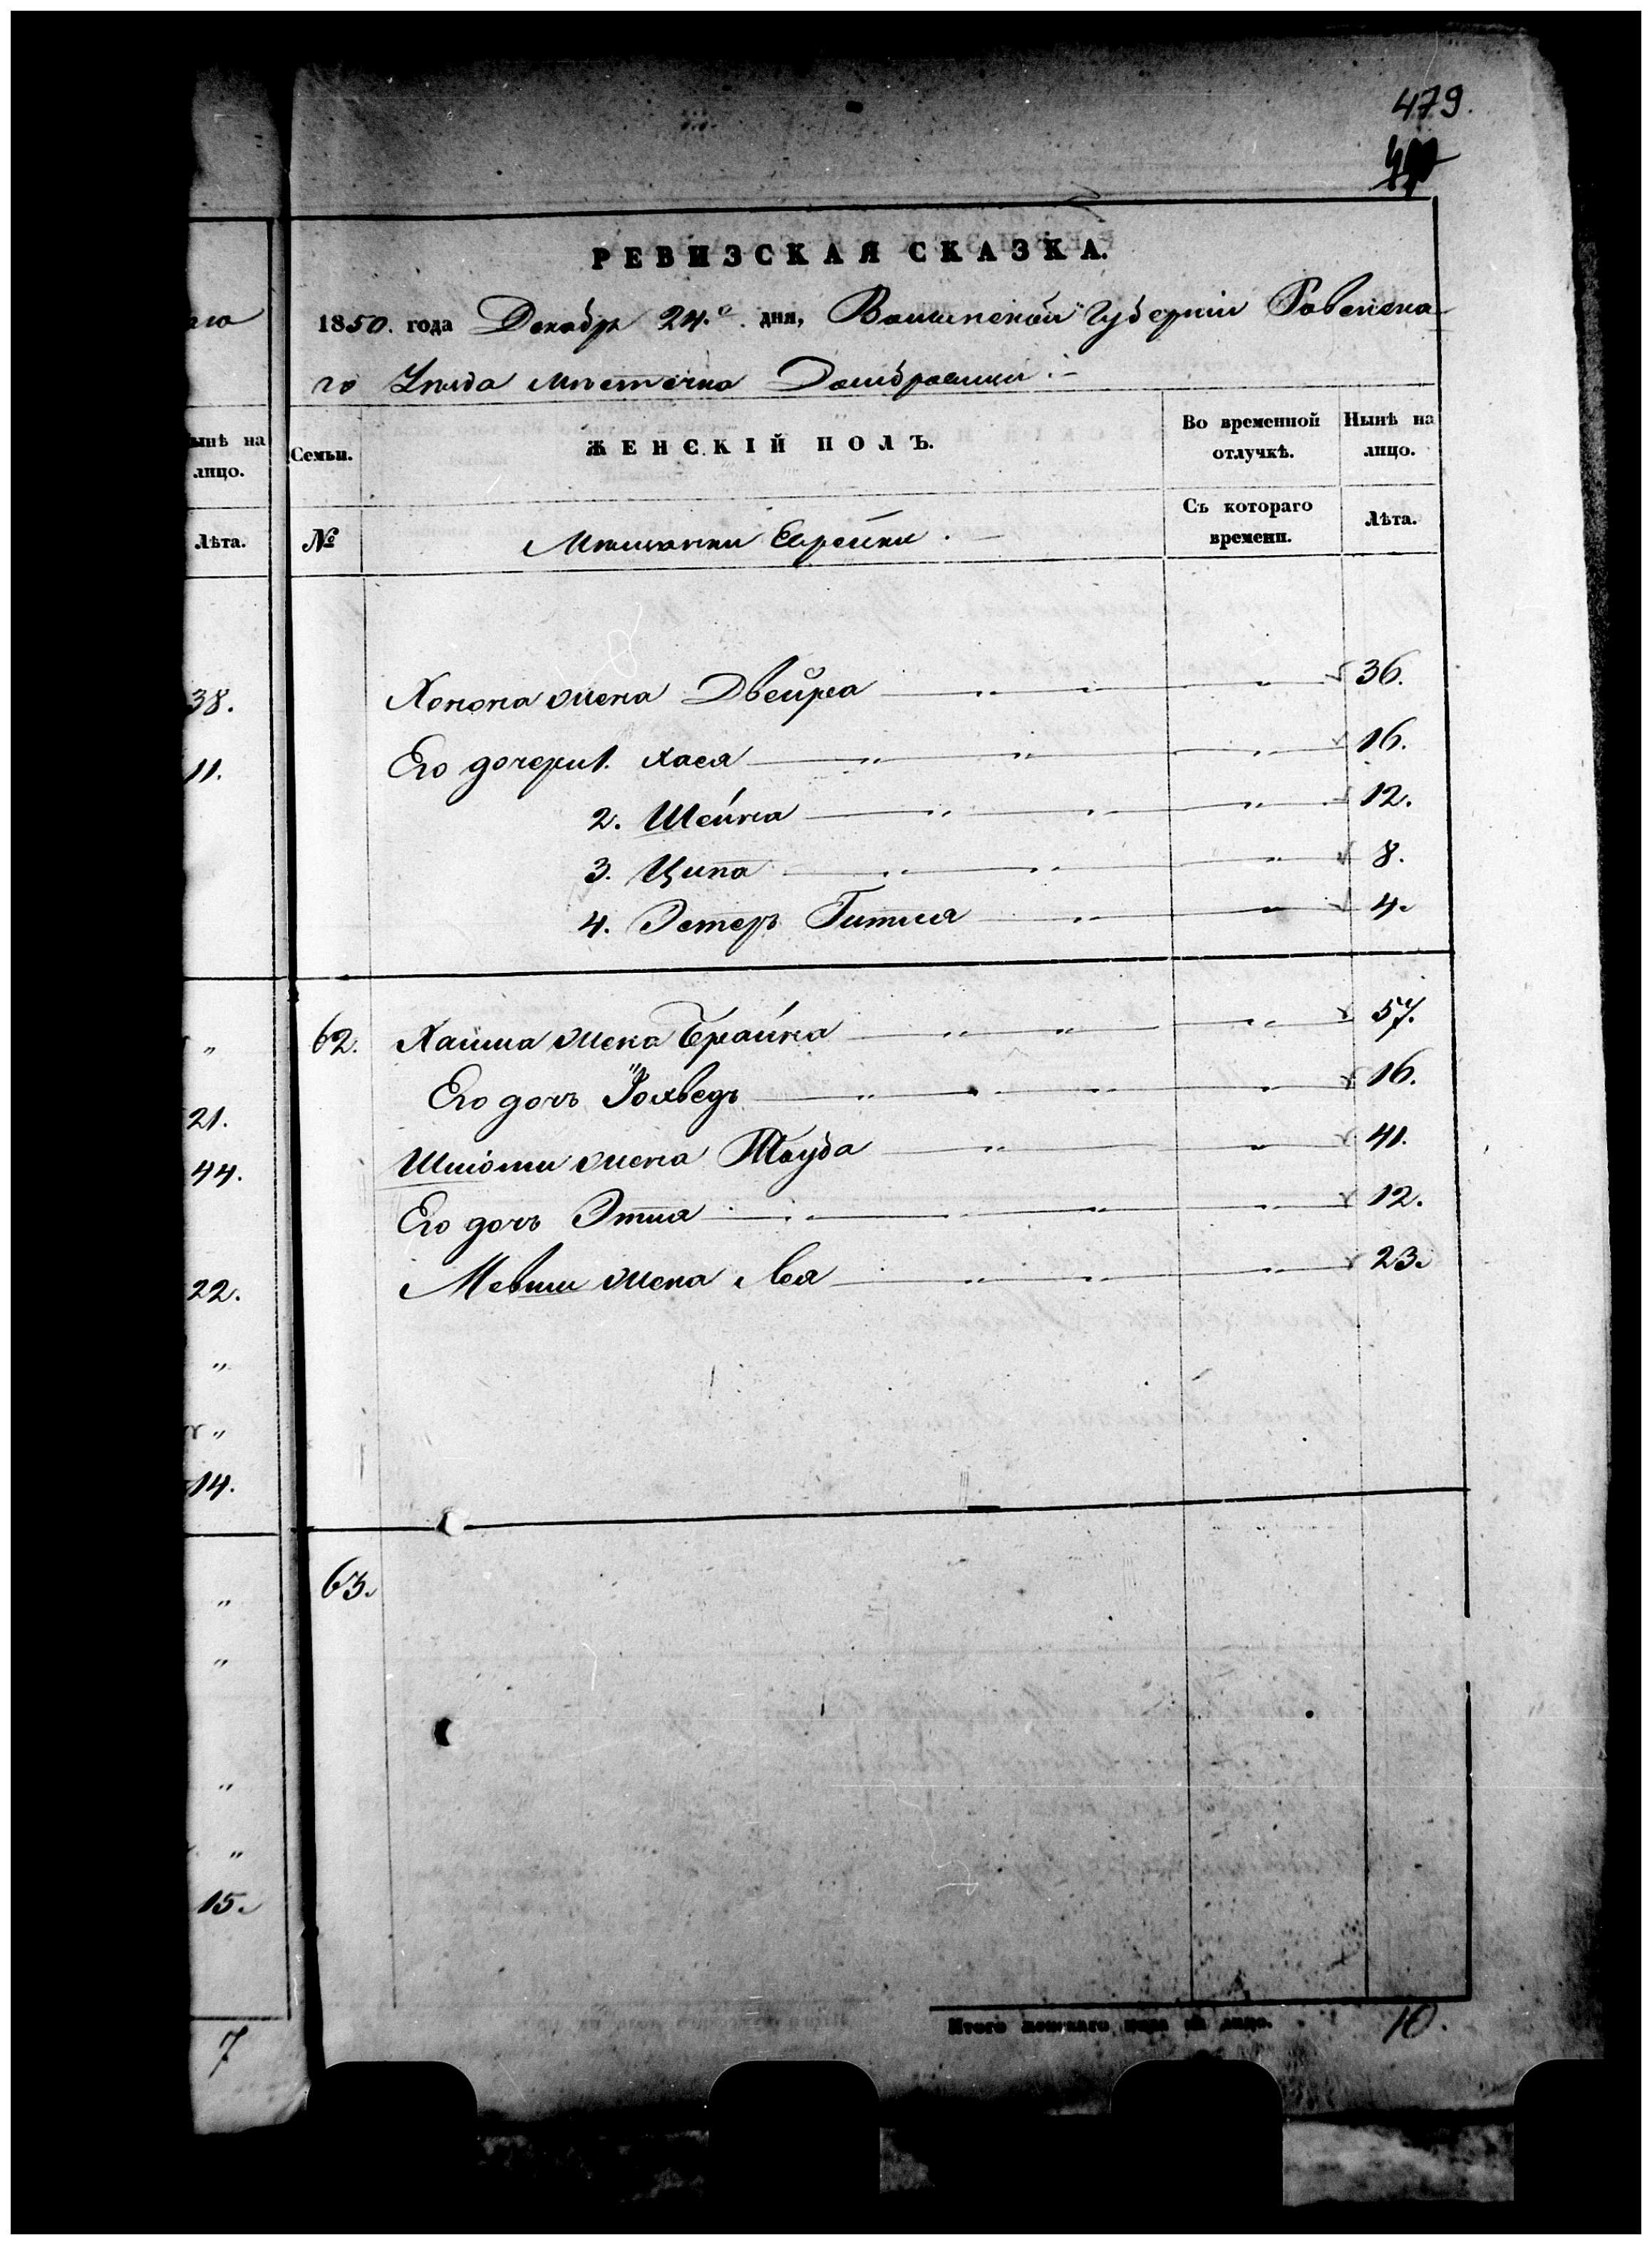 479.
РЕВИЗСКАЯ СКАЗКА.
1850. года Декабр 24.го дня, Волынской Губерніи Ровенска
го Уѣзда мѣстечка Домбровици
Семьи.
ЖЕНСКІЙ ПОЛЪ.
Во временной отлучкѣ.
Нынѣ на лицо.
№
Мѣщанки Еврейки.
Съ котораго времени.
Лѣта.
Хонона жена Двейра 36.
Его дочери 1. Хася 16.
2. Шейна 12.
3. Ципа 8.
4. Эстеръ Гитля 4.
62. Хаима жена Брайна 57.
Его дочь Іохведъ 16.
Шліомы жена Тауба 41.
Его дочь Этля 12.
Мевши жена Лея 23.
63.
Итого женскаго пола на лицо. 10.
аго
Нынѣ на лицо.
Лѣта.
38.
11.
"
21.
44.
22.
"
"
14.
"
"
"
"
15.
7